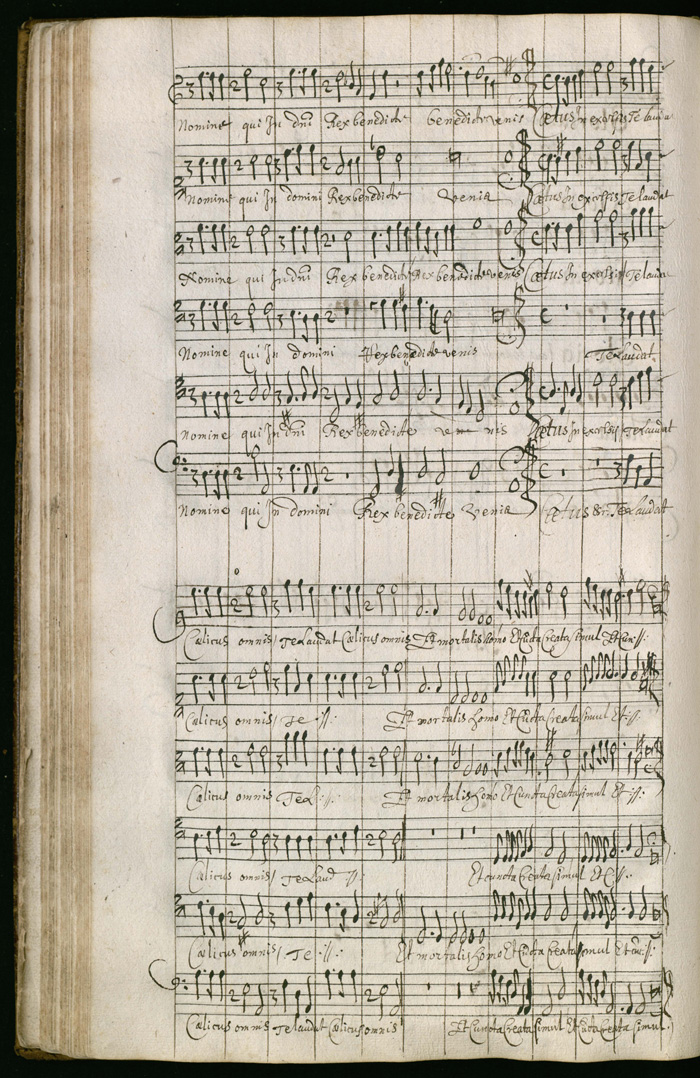 Nomine qui In dni Rex benedicte benedicte venis Cœtus In excelsis Te lauda
Nomine qui In domini Rex benedicte Venis Cœtus In excelsis Te laudat
Nomine qui In dni Rex benedicte Rex benedicte venis Cœtus In excelsis Te lauda
Nomine qui In domini Rex benedicte venis Te laudat
Nomine qui In dni Rex benedicte ve nis Cœtus In excelsis Te laudat
Nomine qui In domini Rex benedicte Venis Cœtus &c: Te laudat
Cælicus omnis Te laudat Cælicus omnis Et mortalis homo Et Cūcta Creata simul
Cælicus omnis Te :||: Et mortalis homo Et Cūcta Creata simul Et :||:
Cælicus omnis Te L :||: Et mortalis homo Et Cuncta Creata simul Et :||:
Cælicus omnis Te Laud :||: Et cuncta Creata simul Et C :||:
Cælicus omnis Te :||: Et mortalis homo Et Cūcta Creata simul
Cælicus omnis Te laudat Cælicus omnis Et Cuncta Creata simul Et Cūcta Creata simul.